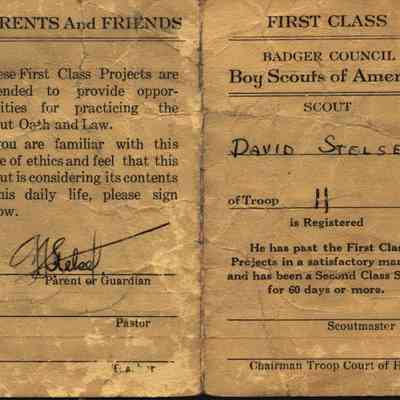 RENTS And FRIENDS
ese First Class Projects are
ended to provide oppor-
ities for practicing the
ut Oath and Law.
you are familiar with this
e of ethics and feel that this
ut is considering its contents
his daily life, please sign
ow.
Parent or Guardian
Pastor
FIRST CLASS
BADGER COUNCIL
Boy Scouts of Amer
SCOUT
DAVID STELSE
of Troop 11
is Registered
He has past the First Clas
Projects in a satisfactory man
and has been a Second Class S
for 60 days or more.
Scoutmaster
Chairman Troop Court of H